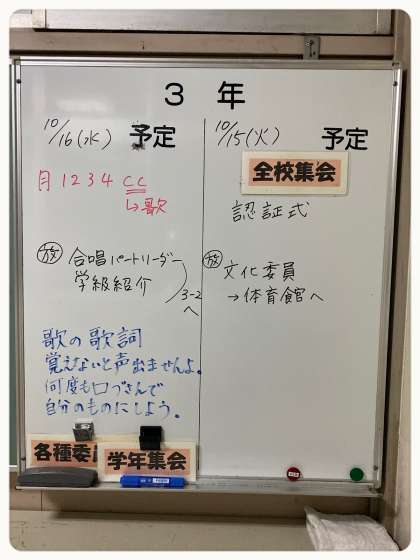 3年
10/16(水) 予定
月1234CC
↳歌
放 合唱パートリーダー
学級紹介
3-2へ
歌の歌詞
覚えないと声出ませんよ。
何度も口づさんで
自分のものにしよう。
各種委
学年集会
10/15(火) 予定
全校集会
認証式
放 文化委員
→体育館へ